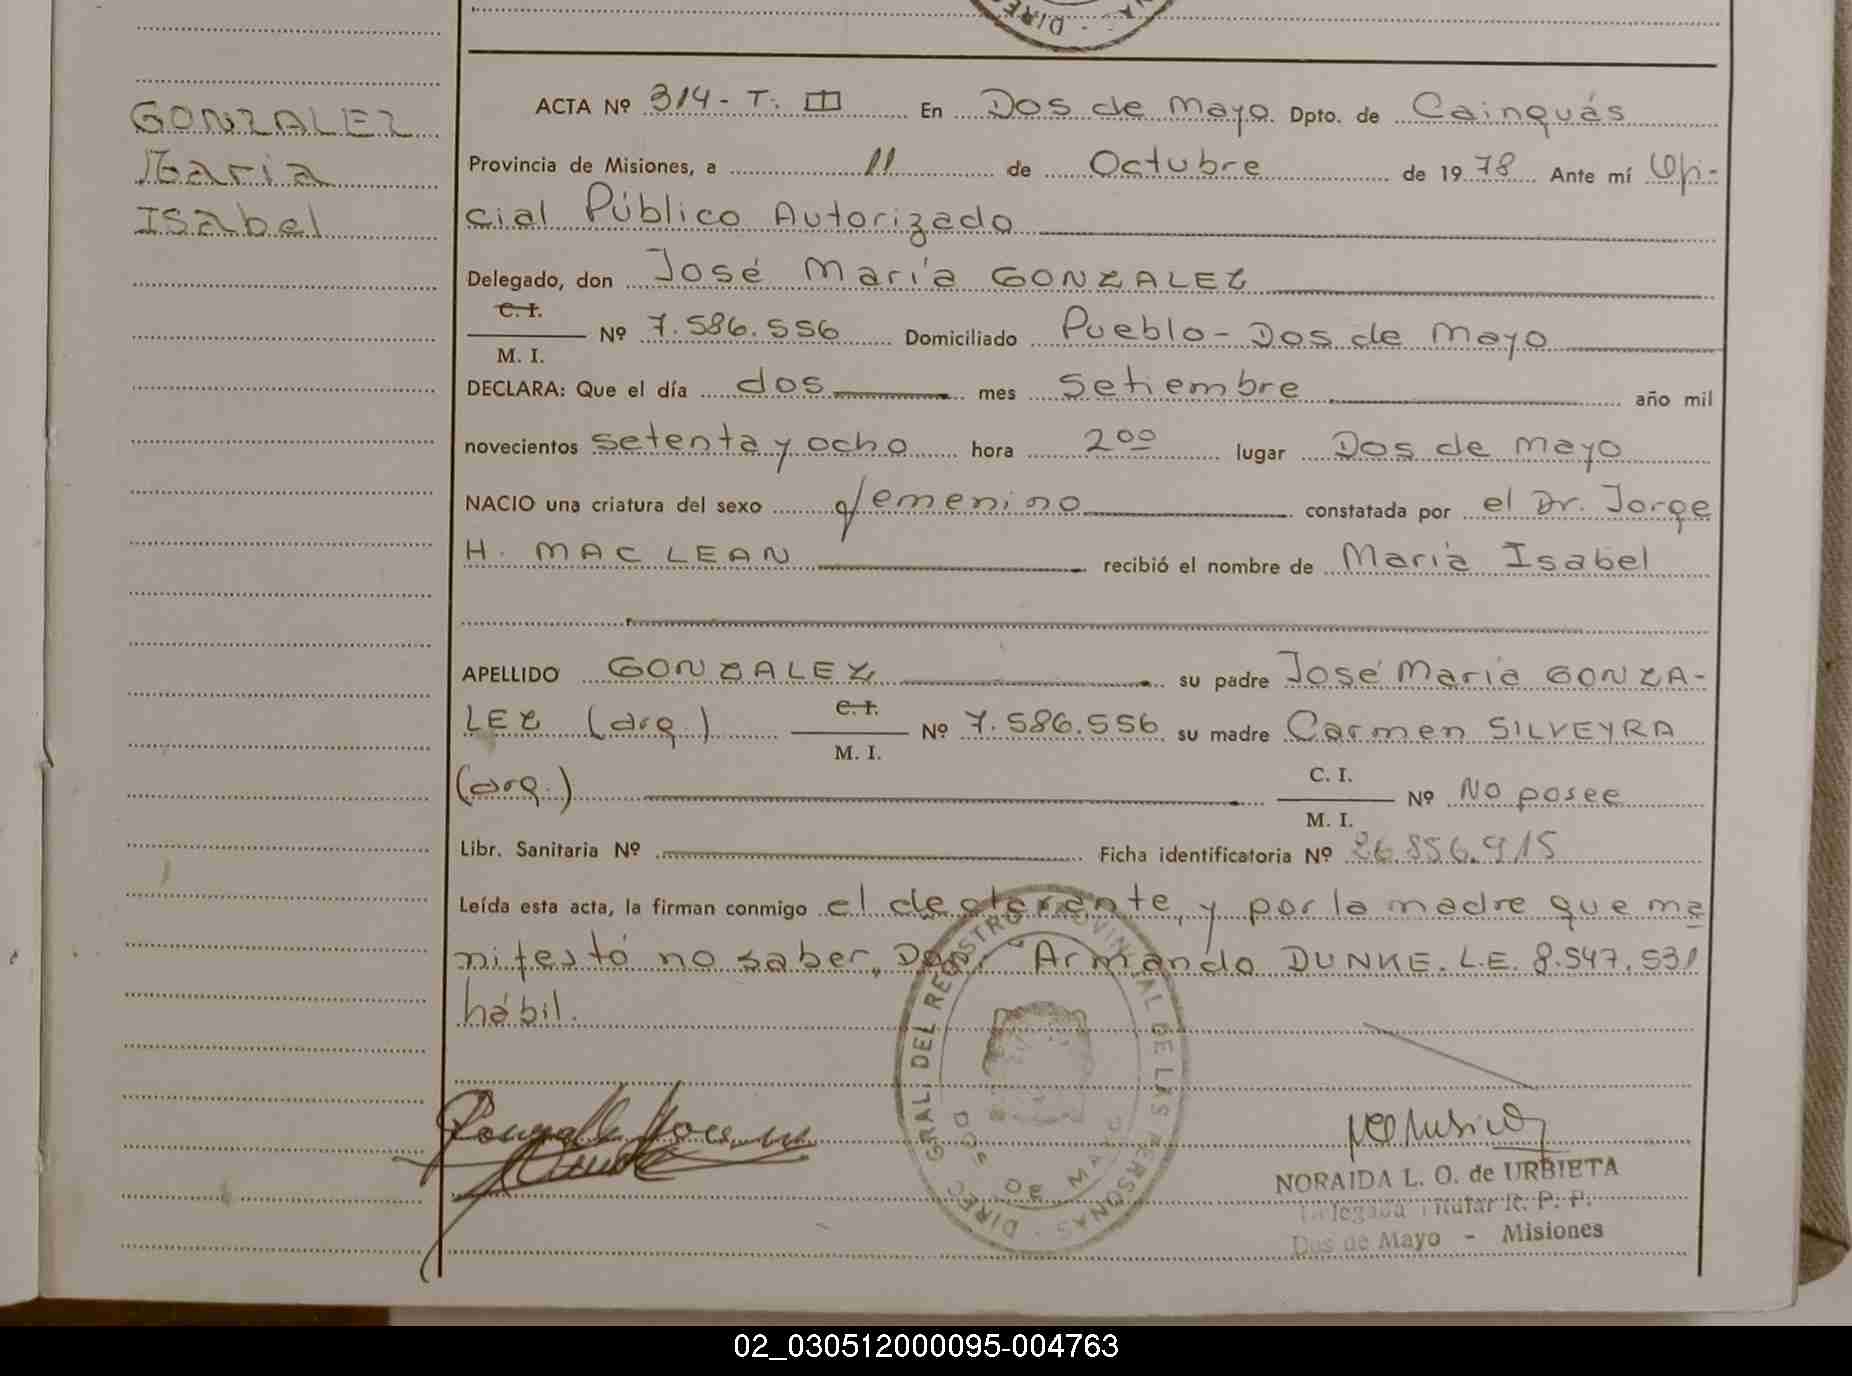 GONZALEZ
Maria
Isabel
ACTA Nº 314 - T. III En Dos de Mayo Dpto. de Cainguás
Provincia de Misiones, a 11 de Octubre de 1978 Ante mí Ofi-
cial Público Autorizado
Delegado, don José María GONZALEZ
C. I.
M. I. Nº 7.586.556 Domiciliado Pueblo - Dos de Mayo
DECLARA: Que el día dos mes setiembre año mil
novecientos setenta y ocho hora 2⁰⁰ lugar Dos de Mayo
NACIO una criatura del sexo femenino constatada por el Dr. Jorge
H. MAC LEAN recibió el nombre de María Isabel
APELLIDO GONZALEZ su padre José María GONZA-
LEZ (arg.) C. I. M. I. Nº 7.586.556 su madre Carmen SILVEYRA
(arg.) C. I. M. I. Nº No posee
Libr. Sanitaria Nº Ficha identificatoria Nº 26.856.915
Leída esta acta, la firman conmigo el declarante, y por la madre que ma
nifestó no saber, Don Armando DUNKE. L.E. 8.547.531
hábil.
DIREC. GRAL. DEL REGISTRO PROVINCIAL DE LAS PERSONAS
DOS DE MAYO
NORAIDA L. O. de URBIETA
Delegada Titular R. P. P.
Dos de Mayo - Misiones
02_030512000095-004763